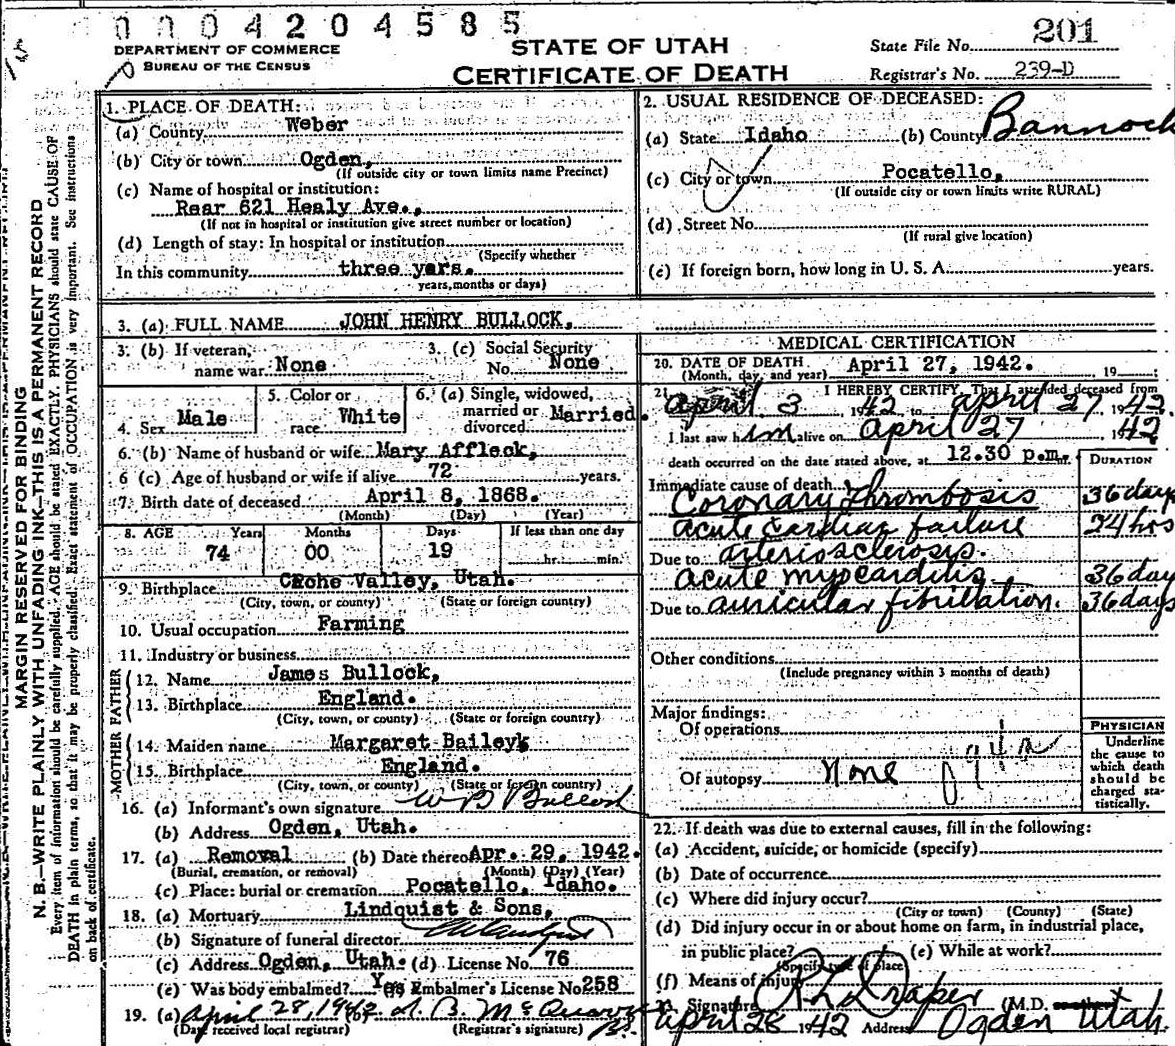 0004204585
201
DEPARTMENT OF COMMERCE
BUREAU OF THE CENSUS
STATE OF UTAH
CERTIFICATE OF DEATH
State File No.
Registrar's No. 239-D
MARGIN RESERVED FOR BINDING
N. B.—WRITE PLAINLY WITH UNFADING INK—THIS IS A PERMANENT RECORD
Every item of information should be carefully supplied. AGE should be stated EXACTLY. PHYSICIANS should state CAUSE OF
DEATH in plain terms, so that it may be properly classified. Exact statement of OCCUPATION is very important. See instructions
on back of certificate.
1. PLACE OF DEATH:
(a) County Weber
(b) City or town Ogden,
(If outside city or town limits name Precinct)
(c) Name of hospital or institution:
Rear 621 Healy Ave.,
(If not in hospital or institution give street number or location)
(d) Length of stay: In hospital or institution
(Specify whether
In this community three yars.
years, months or days)
2. USUAL RESIDENCE OF DECEASED:
(a) State Idaho (b) County Bannock
(c) City or town Pocatello,
(If outside city or town limits write RURAL)
(d) Street No.
(If rural give location)
(e) If foreign born, how long in U. S. A. years.
3. (a) FULL NAME JOHN HENRY BULLOCK,
3. (b) If veteran, name war None
3. (c) Social Security No. None
4. Sex Male
5. Color or race White
6. (a) Single, widowed, married or divorced Married.
6. (b) Name of husband or wife Mary Affleck,
6 (c) Age of husband or wife if alive 72 years.
7. Birth date of deceased April 8, 1868.
(Month) (Day) (Year)
8. AGE Years Months Days If less than one day
74 00 19 hr. min.
9. Birthplace Cache Valley, Utah.
(City, town, or county) (State or foreign country)
10. Usual occupation Farming
11. Industry or business
FATHER
12. Name James Bullock,
13. Birthplace England.
(City, town, or county) (State or foreign country)
MOTHER
14. Maiden name Margaret Baileyk
15. Birthplace England.
(City, town, or county) (State or foreign country)
16. (a) Informant's own signature W B Bullock
(b) Address Ogden, Utah.
17. (a) Removal (b) Date thereof Apr. 29, 1942.
(Burial, cremation, or removal) (Month) (Day) (Year)
(c) Place: burial or cremation Pocatello, Idaho.
18. (a) Mortuary Lindquist & Sons,
(b) Signature of funeral director
(c) Address Ogden, Utah. (d) License No. 76
(e) Was body embalmed? Yes (f) Embalmer's License No. 258
19. (a) April 28, 1942
(Date received local registrar) (Registrar's signature)
MEDICAL CERTIFICATION
20. DATE OF DEATH April 27, 1942. 19
(Month, day, and year)
21. I HEREBY CERTIFY, That I attended deceased from
April 3 1942 to April 27, 1942
I last saw him alive on April 27, 1942
death occurred on the date stated above, at 12.30 p.m.
DURATION
Immediate cause of death
Coronary Thrombosis 36 days
acute cardiac failure 24 hrs
Due to arteriosclerosis.
acute myocarditis 36 days
Due to auricular fibrillation. 36 days
Other conditions
(Include pregnancy within 3 months of death)
Major findings:
Of operations
94a
Of autopsy None
PHYSICIAN
Underline
the cause to
which death
should be
charged sta-
tistically.
22. If death was due to external causes, fill in the following:
(a) Accident, suicide, or homicide (specify)
(b) Date of occurrence
(c) Where did injury occur?
(City or town) (County) (State)
(d) Did injury occur in or about home on farm, in industrial place,
in public place? (e) While at work?
(Specify type of place)
(f) Means of injury
23. Signature Draper (M.D.
April 28 1942 Address Ogden Utah.